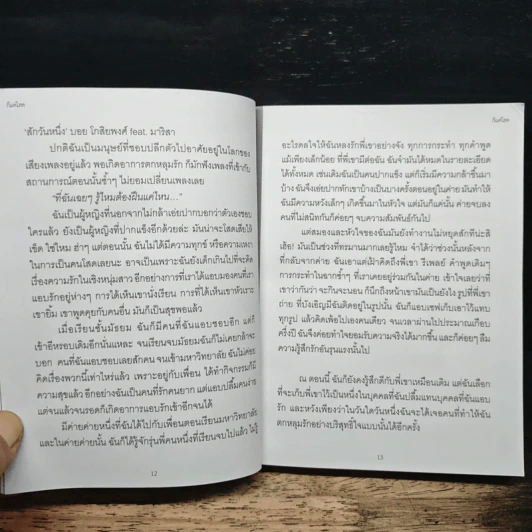 กันต์โสต
'สักวันหนึ่ง' บอย โกสิยพงศ์ feat. มาริสา
ปกติฉันเป็นมนุษย์ที่ชอบปลีกตัวไปอาศัยอยู่ในโลกของ
เสียงเพลงอยู่แล้ว พอเกิดอาการตกหลุมรัก ก็มักฟังเพลงที่เข้ากับ
สถานการณ์ตอนนั้นซ้ำๆ ไม่ยอมเปลี่ยนเพลงเลย
"ที่ฉันเฉยๆ รู้ไหมต้องฝืนแค่ไหน..."
ฉันเป็นผู้หญิงที่นอกจากไม่กล้าเอ่ยปากบอกว่าตัวเองชอบ
ใครแล้ว ยังเป็นผู้หญิงที่ปากแข็งอีกด้วยละ มันน่าจะโสดเสียให้
เข็ด ใช่ไหม ฮ่าๆ แต่ตอนนั้น ฉันไม่ได้มีความทุกข์ หรือความเหงา
ในการเป็นคนโสดเลยนะ อาจเป็นเพราะฉันยังเด็กเกินไปที่จะคิด
เรื่องความรักในเชิงหนุ่มสาว อีกอย่างการที่เราได้แอบมองคนที่เรา
แอบรักอยู่ห่างๆ การได้เห็นเขานั่งเรียน การที่ได้เห็นเขาหัวเราะ
เขายิ้ม เขาพูดคุยกับคนอื่น มันก็เป็นสุขพอแล้ว
เมื่อเรียนชั้นมัธยม ฉันก็มีคนที่ฉันแอบชอบอีก แต่ก็
เข้าอีหรอบเดิมอีกนั่นแหละ จนเรียนจบมัธยมฉันก็ไม่เคยกล้าจะ
บอก คนที่ฉันแอบชอบเลยสักคน จนเข้ามหาวิทยาลัย ฉันไม่ค่อย
คิดเรื่องพวกนี้เท่าไหร่แล้ว เพราะอยู่กับเพื่อน ได้ทำกิจกรรมก็มี
ความสุขแล้ว อีกอย่างฉันเป็นคนที่รักคนยาก แต่แอบปลื้มคนง่าย
แต่จนแล้วจนรอดก็เกิดอาการแอบรักเข้าอีกจนได้
มีค่ายค่ายหนึ่งที่ฉันได้ไปกับเพื่อนตอนเรียนมหาวิทยาลัย
และในค่ายค่ายนั้น ฉันก็ได้รู้จักรุ่นพี่คนหนึ่งที่เรียนจบไปแล้ว ไม่รู้
12
กันต์โสต
อะไรดลใจให้ฉันหลงรักพี่เขาอย่างจัง ทุกการกระทำ ทุกคำพูด
แม้เพียงเล็กน้อย ที่พี่เขามีต่อฉัน ฉันจำมันได้หมดในรายละเอียด
ได้ทั้งหมด เช่นเดิมฉันเป็นคนปากแข็ง แต่ก็เริ่มมีความกล้าขึ้นมา
บ้าง ฉันจึงเอ่ยปากทักเขาบ้างเป็นบางครั้งตอนอยู่ในค่าย มันทำให้
ฉันมีความหวังเล็กๆ เกิดขึ้นมาในหัวใจ แต่มันก็แค่นั้น ค่ายจบลง
คนที่ไม่สนิทกันก็ค่อยๆ จบความสัมพันธ์กันไป
แต่สมองและหัวใจของฉันมันยังทำงานไม่หยุดสักทีน่ะสิ
เฮ้อ! มันเป็นช่วงที่ทรมานมากเลยรู้ไหม จำได้ว่าช่วงนั้นหลังจาก
ที่กลับจากค่าย ฉันเอาแต่เฝ้าคิดถึงพี่เขา รีเพลย์ คำพูดเดิมๆ
การกระทำในฉากซ้ำๆ ที่เราเคยอยู่ร่วมกันในค่าย เข้าใจเลยว่าที่
เขาว่ากันว่า จะกินจะนอน ก็นึกถึงหน้าเขามันเป็นยังไง รูปที่พี่เขา
ถ่าย ที่บังเอิญมีฉันติดอยู่ในรูปนั้น ฉันก็แอบเซฟเก็บเอาไว้แทบ
ทุกรูป แล้วคิดเพ้อไปเองคนเดียว จนเวลาผ่านไปประมาณเกือบ
ครึ่งปี ฉันจึงค่อยทำใจยอมรับความจริงได้มากขึ้น และก็ค่อยๆ ลืม
ความรู้สึกรักอันรุนแรงนั้นไป
ณ ตอนนี้ ฉันก็ยังคงรู้สึกดีกับพี่เขาเหมือนเดิม แต่ฉันเลือก
ที่จะเก็บพี่เขาไว้เป็นหนึ่งในบุคคลที่ฉันปลื้มแทนบุคคลที่ฉันแอบ
รัก และหวังเพียงว่าในวันใดวันหนึ่งฉันจะได้เจอคนที่ทำให้ฉัน
ตกหลุมรักอย่างบริสุทธิ์ใจแบบนั้นได้อีกครั้ง
13